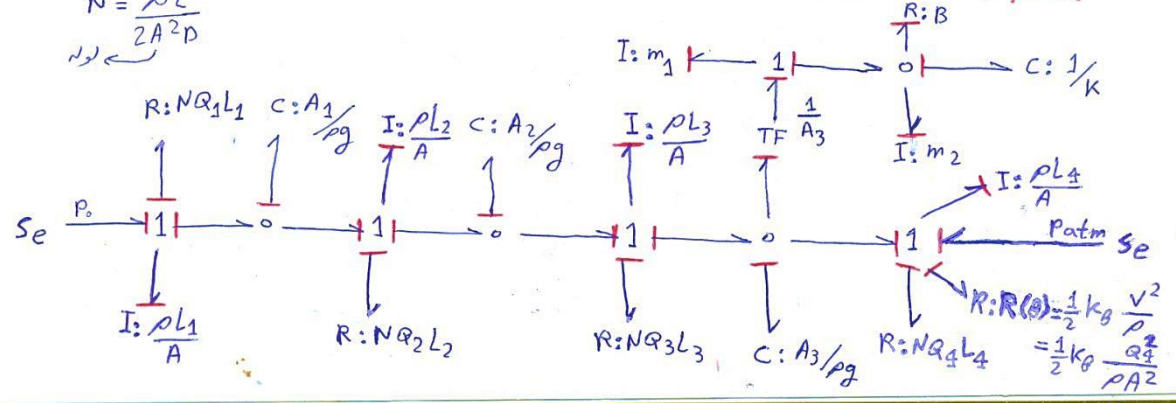 N =
2A²D
R:B
I: m₁ 1 0 C: 1/K
R:NQ₁L₁ C: A₁/ρg I: ρL₂/A C: A₂/ρg I: ρL₃/A TF 1/A₃ I: m₂
I: ρL₄/A
Se P₀ 1 0 1 0 1 0 1 Patm Se
I: ρL₁/A R:NQ₂L₂ R:NQ₃L₃ C: A₃/ρg R:NQ₄L₄ R:R(θ)=½ k_θ V²/ρ
=½ k_θ Q₄²/ρA²